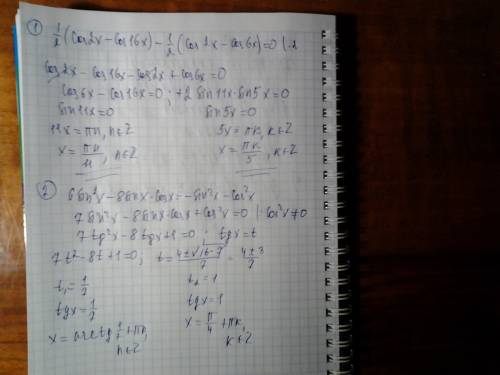 ① 1/2 (cos 2x − cos 16x) − 1/2 (cos 2x − cos 6x) = 0 | · 2
cos 2x − cos 16x − cos 2x + cos 6x = 0
cos 6x − cos 16x = 0 ; +2 sin 11x · sin 5x = 0
sin 11x = 0 sin 5x = 0
11x = πn, n∈Z 5x = πk, k∈Z
x = πn/11, n∈Z x = πk/5, k∈Z
② 6 sin²x − 8 sin x · cos x = −sin²x − cos²x
7 sin²x − 8 sin x · cos x + cos²x = 0 | : cos²x ≠ 0
7 tg²x − 8 tg x + 1 = 0 ; tg x = t
7t² − 8t + 1 = 0 ; t = (4 ± √(16 − 7))/7 = (4 ± 3)/7
t₁ = 1/7 t₂ = 1
tg x = 1/7 tg x = 1
x = arctg 1/7 + πn, x = π/4 + πk,
n∈Z k∈Z